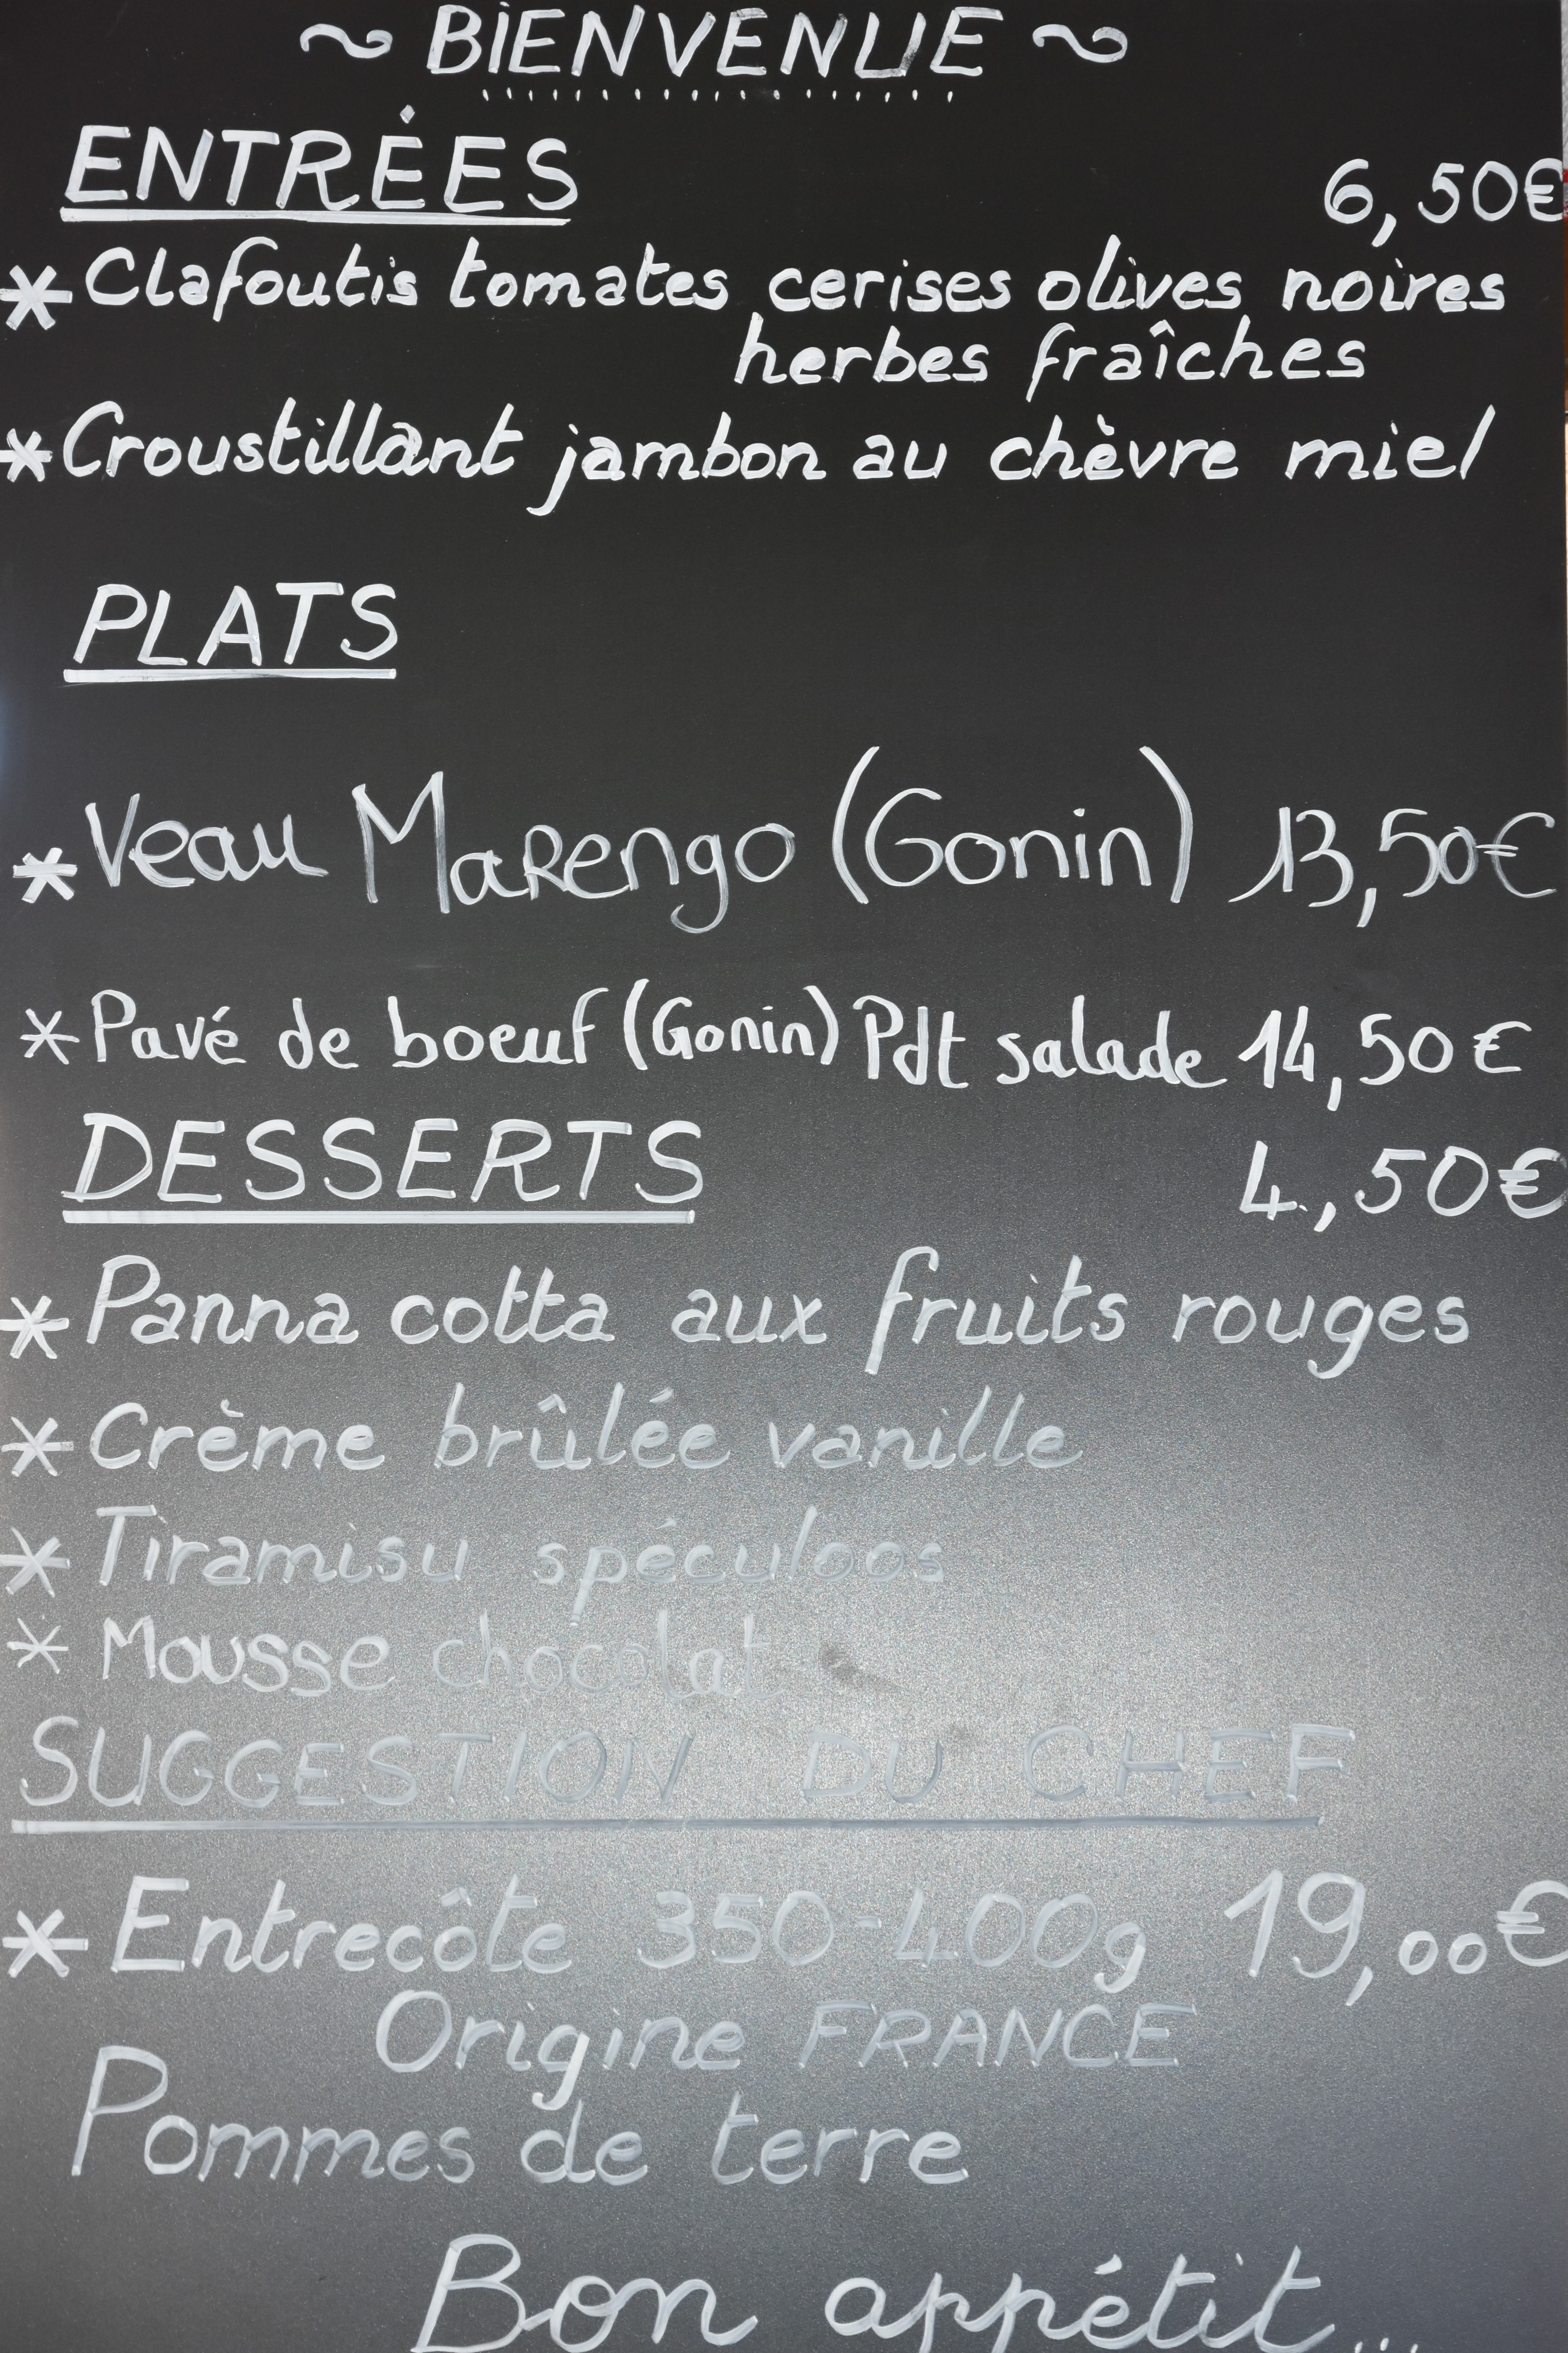 ~ BIENVENUE ~
ENTRÉES 6,50€
* Clafoutis tomates cerises olives noires
herbes fraîches
* Croustillant jambon au chèvre miel
PLATS
* Veau Marengo (Gonin) 13,50€
* Pavé de boeuf (Gonin) Pdt salade 14,50€
DESSERTS 4,50€
* Panna cotta aux fruits rouges
* Crème brûlée vanille
* Tiramisu spéculoos
* Mousse chocolat
SUGGESTION DU CHEF
* Entrecôte 350-400g 19,00€
Origine FRANCE
Pommes de terre
Bon appétit...